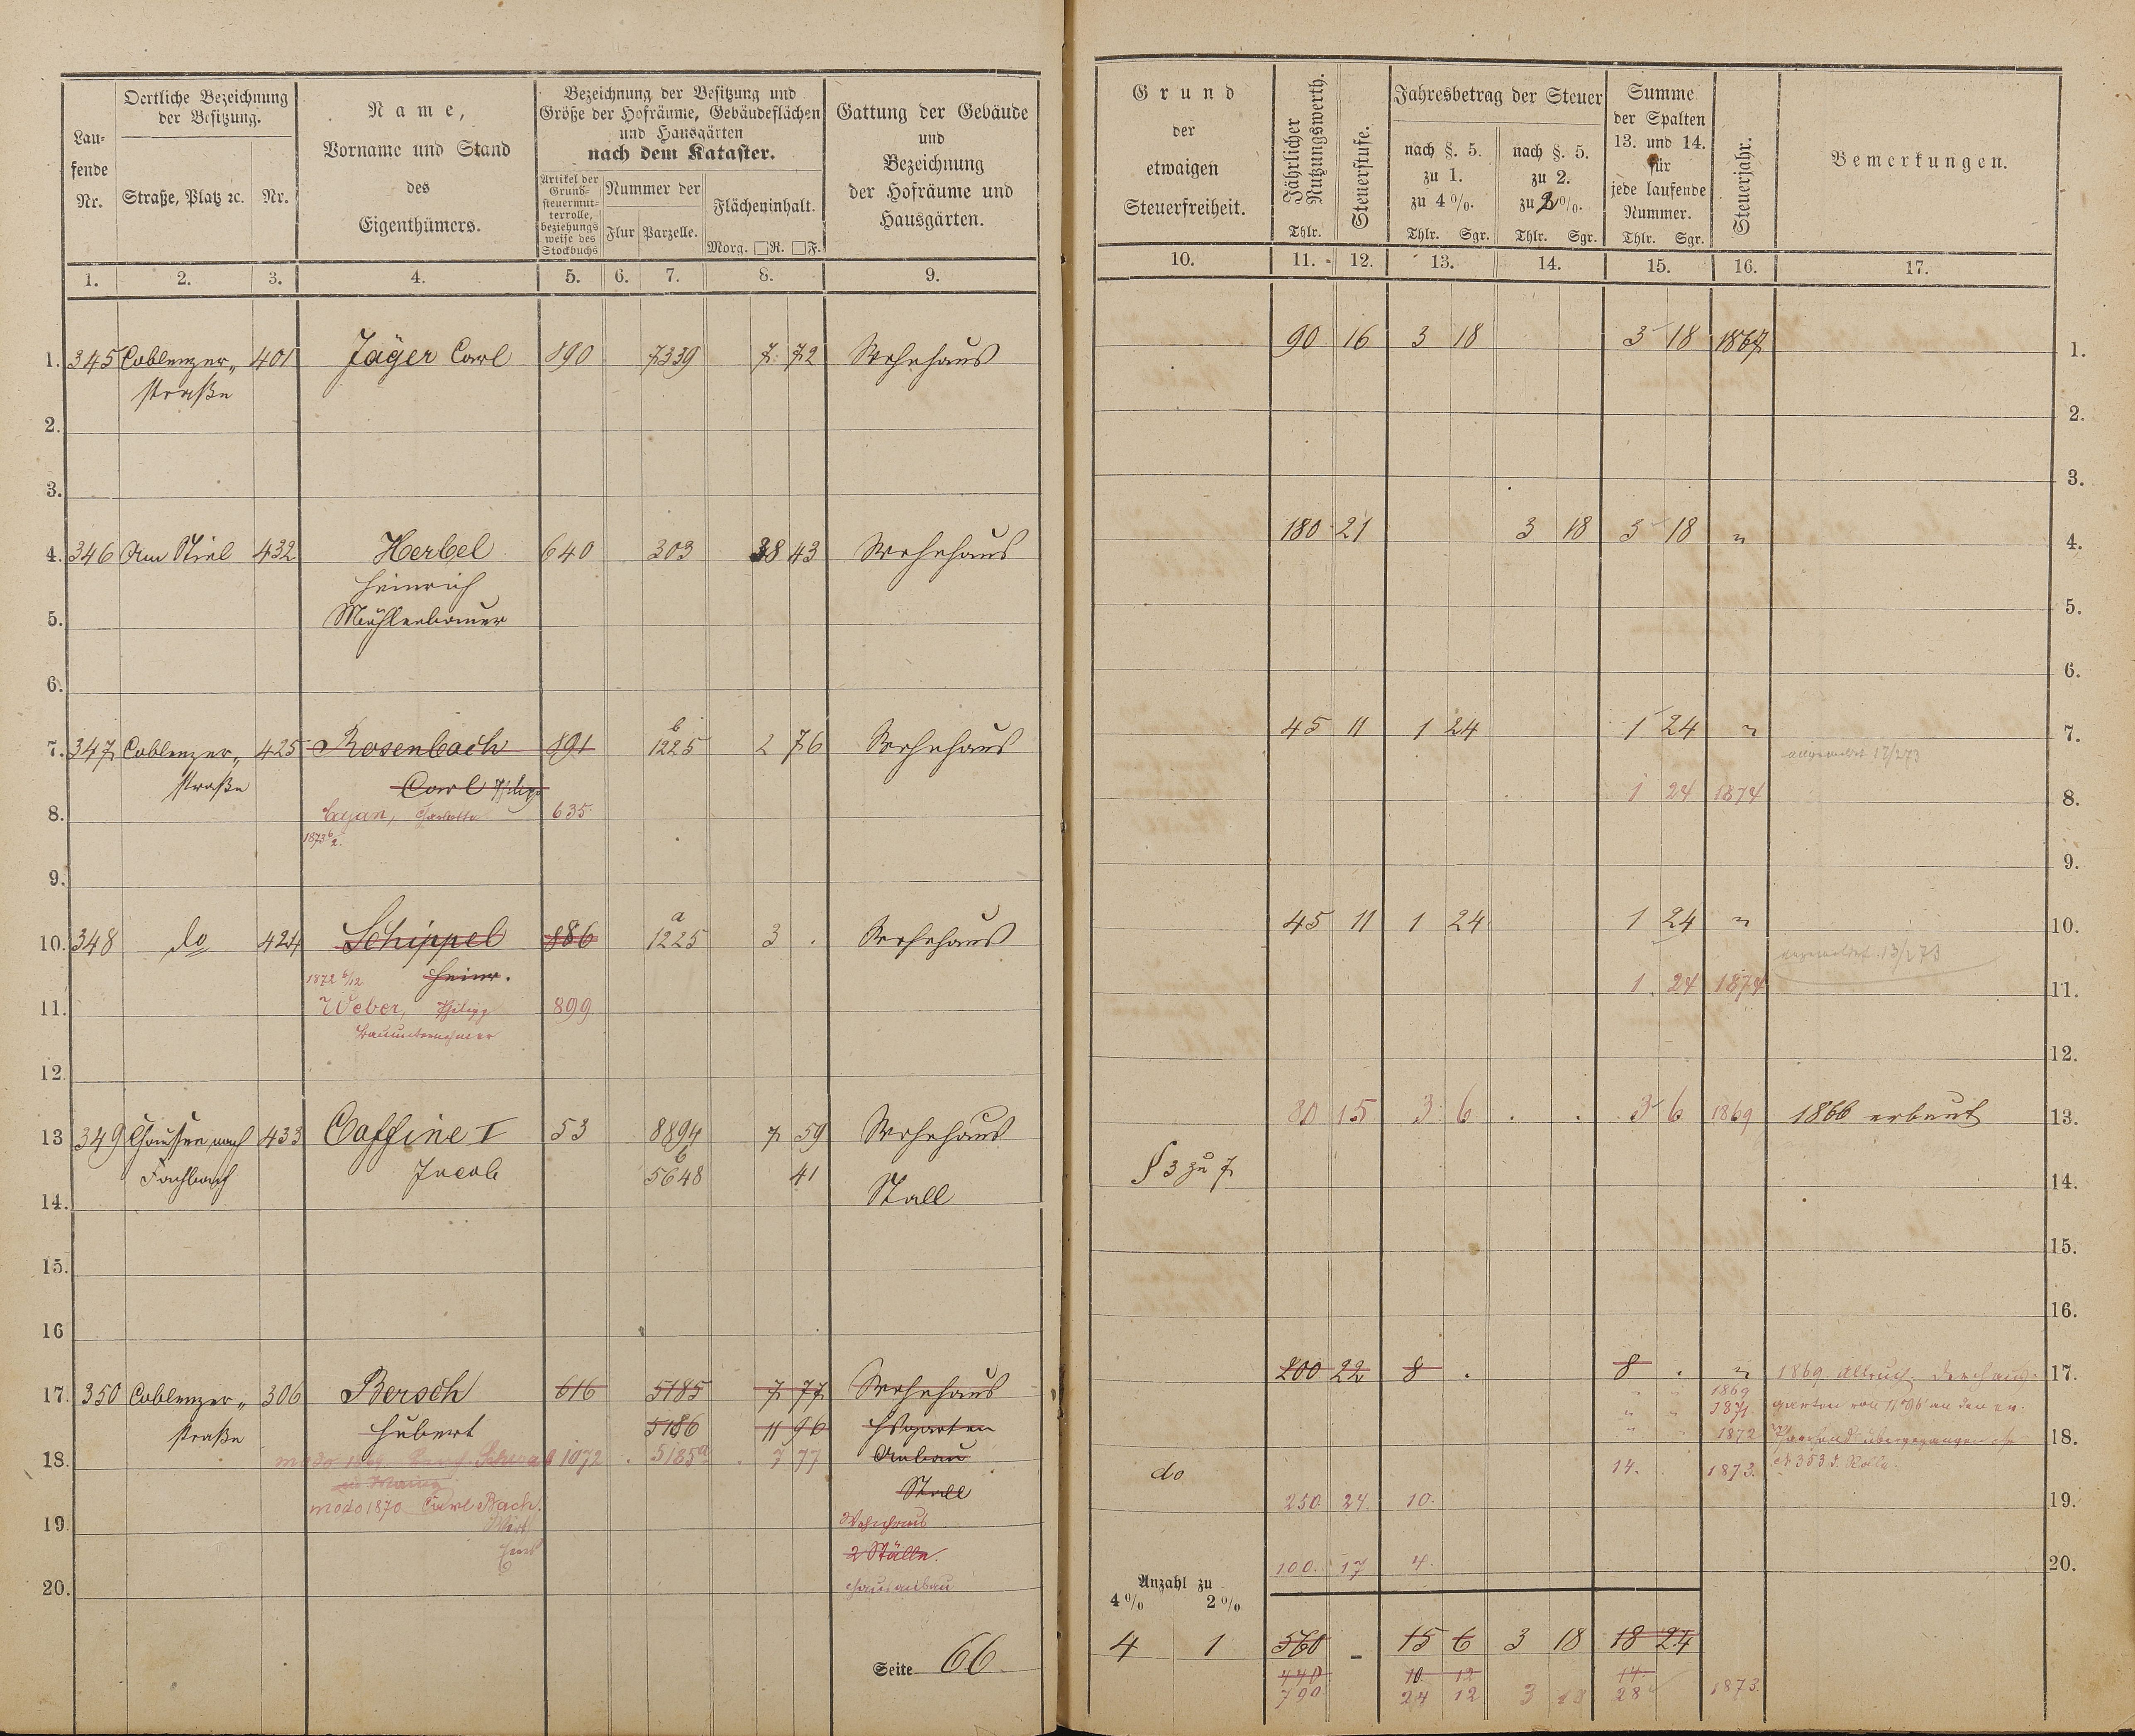 Lau-
fende
Nr.
Oertliche Bezeichnung
der Besitzung.
Straße, Platz ꝛc.
Nr.
Name,
Vorname und Stand
des
Eigenthümers.
Bezeichnung der Besitzung und
Größe der Hofräume, Gebäudeflächen
und Hausgärten
nach dem Kataster.
Artikel der
Grund-
steuermut-
terrolle,
beziehungs
weise des
Stockbuchs
Nummer der
Flur
Parzelle.
Flächeninhalt.
Morg. □R. □F.
Gattung der Gebäude
und
Bezeichnung
der Hofräume und
Hausgärten.
1. 2. 3. 4. 5. 6. 7. 8. 9.
1. 345 Coblenzer„ 401 Jäger Carl 890 7339 7 72 Wohnhaus
straße
2.
3.
4. 346 Am Stiel 432 Herbel 640 303 38 43 Wohnhaus
Heinrich
5. Mühlenbauer
6.
b
7. 347 Coblenzer„ 425 Rosenbach 891 1225 2 76 Wohnhaus
straße Carl
8. Cajan, Charlotte 635
1873 6/2.
9.
a
10. 348 do 424 Schippel 886 1225 3 . Wohnhaus
1872 6/12 Heinr.
11. Weber, Philipp 899
Bauunternehmer
12.
13 349 Chaussee nach 433 Caffine I 53 8894 7 59 Wohnhaus
Fachbach Jacob b 5648 41
14. Stall
15.
16
17. 350 Coblenzer„ 306 Bersch 616 5185 7 77 Wohnhaus
straße Hubert 5186 11 96 Hsgarten
18. modo 1869 1072 . 5185a . 7 77 Anbau
Stall
modo 1870 Carl Bach.
19. Wirt Wohnhaus
Ems 2 Ställe.
20. Hausanbau
Seite 66
Grund
der
etwaigen
Steuerfreiheit.
Jährlicher
Nutzungswerth.
Thlr.
Steuerstufe.
Jahresbetrag der Steuer
nach §. 5.
zu 1.
zu 4 %.
Thlr. Sgr.
nach §. 5.
zu 2.
zu 2 %.
Thlr. Sgr.
Summe
der Spalten
13. und 14.
für
jede laufende
Nummer.
Thlr. Sgr.
Steuerjahr.
Bemerkungen.
10. 11. 12. 13. 14. 15. 16. 17.
90 16 3 18 3 18 1867 1.
2.
3.
180 21 3 18 3 18 „ 4.
5.
6.
45 11 1 24 1 24 „ 7.
angemeldet 17/2 73
1 24 1874 8.
9.
45 11 1 24 1 24 „ 10.
angemeldet 13/2 73
1 24 1874 11.
12.
80 15 3 6 . . 3 6 1869 1866 erbaut 13.
§ 3 zu 7
14.
15.
16.
200 22 8 . 8 . „ 1869 17.
„ „ 1869
„ „ 1871 garten von 11° 96' an den ev.
„ „ 1872 Pfarrfond übergegangen 18.
do 14. 1873. № 353 d. Rolle.
250 24 10. 19.
100. 17 4. 20.
Anzahl zu
4 % 2 %
4 1 560 – 15 6 3 18 18 24
440 10 12 14.
790 24 12 3 18 28 1873.